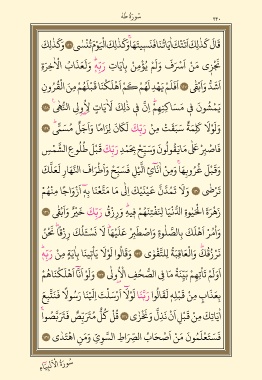 سُورَةُ طٰهٰ ٣٢٠
قَالَ كَذٰلِكَ اَتَتْكَ اٰيَاتُنَا فَنَس۪يتَهَا وَكَذٰلِكَ الْيَوْمَ تُنْسٰى ﴿١٢٦﴾ وَكَذٰلِكَ
نَجْز۪ي مَنْ اَسْرَفَ وَلَمْ يُؤْمِنْ بِاٰيَاتِ رَبِّه۪ وَلَعَذَابُ الْاٰخِرَةِ
اَشَدُّ وَاَبْقٰى ﴿١٢٧﴾ اَفَلَمْ يَهْدِ لَهُمْ كَمْ اَهْلَكْنَا قَبْلَهُمْ مِنَ الْقُرُونِ
يَمْشُونَ ف۪ي مَسَاكِنِهِمْ اِنَّ ف۪ي ذٰلِكَ لَاٰيَاتٍ لِاُو۬لِي النُّهٰى ﴿١٢٨﴾
وَلَوْلَا كَلِمَةٌ سَبَقَتْ مِنْ رَبِّكَ لَكَانَ لِزَامًا وَاَجَلٌ مُسَمًّى ﴿١٢٩﴾
فَاصْبِرْ عَلٰى مَا يَقُولُونَ وَسَبِّحْ بِحَمْدِ رَبِّكَ قَبْلَ طُلُوعِ الشَّمْسِ
وَقَبْلَ غُرُوبِهَا وَمِنْ اٰنَآئِ الَّيْلِ فَسَبِّحْ وَاَطْرَافَ النَّهَارِ لَعَلَّكَ
تَرْضٰى ﴿١٣٠﴾ وَلَا تَمُدَّنَّ عَيْنَيْكَ اِلٰى مَا مَتَّعْنَا بِه۪ٓ اَزْوَاجًا مِنْهُمْ
زَهْرَةَ الْحَيٰوةِ الدُّنْيَا لِنَفْتِنَهُمْ ف۪يهِ وَرِزْقُ رَبِّكَ خَيْرٌ وَاَبْقٰى ﴿١٣١﴾
وَأْمُرْ اَهْلَكَ بِالصَّلٰوةِ وَاصْطَبِرْ عَلَيْهَا لَا نَسْـَٔلُكَ رِزْقًا نَحْنُ
نَرْزُقُكَ وَالْعَاقِبَةُ لِلتَّقْوٰى ﴿١٣٢﴾ وَقَالُوا لَوْلَا يَأْت۪ينَا بِاٰيَةٍ مِنْ رَبِّه۪
اَوَلَمْ تَأْتِهِمْ بَيِّنَةُ مَا فِي الصُّحُفِ الْاُو۫لٰى ﴿١٣٣﴾ وَلَوْ اَنَّٓا اَهْلَكْنَاهُمْ
بِعَذَابٍ مِنْ قَبْلِه۪ لَقَالُوا رَبَّنَا لَوْلَٓا اَرْسَلْتَ اِلَيْنَا رَسُولًا فَنَتَّبِعَ
اٰيَاتِكَ مِنْ قَبْلِ اَنْ نَذِلَّ وَنَخْزٰى ﴿١٣٤﴾ قُلْ كُلٌّ مُتَرَبِّصٌ فَتَرَبَّصُوا
فَسَتَعْلَمُونَ مَنْ اَصْحَابُ الصِّرَاطِ السَّوِيِّ وَمَنِ اهْتَدٰى ﴿١٣٥﴾
سُورَةُ الْاَنْبِيَٓاءِ